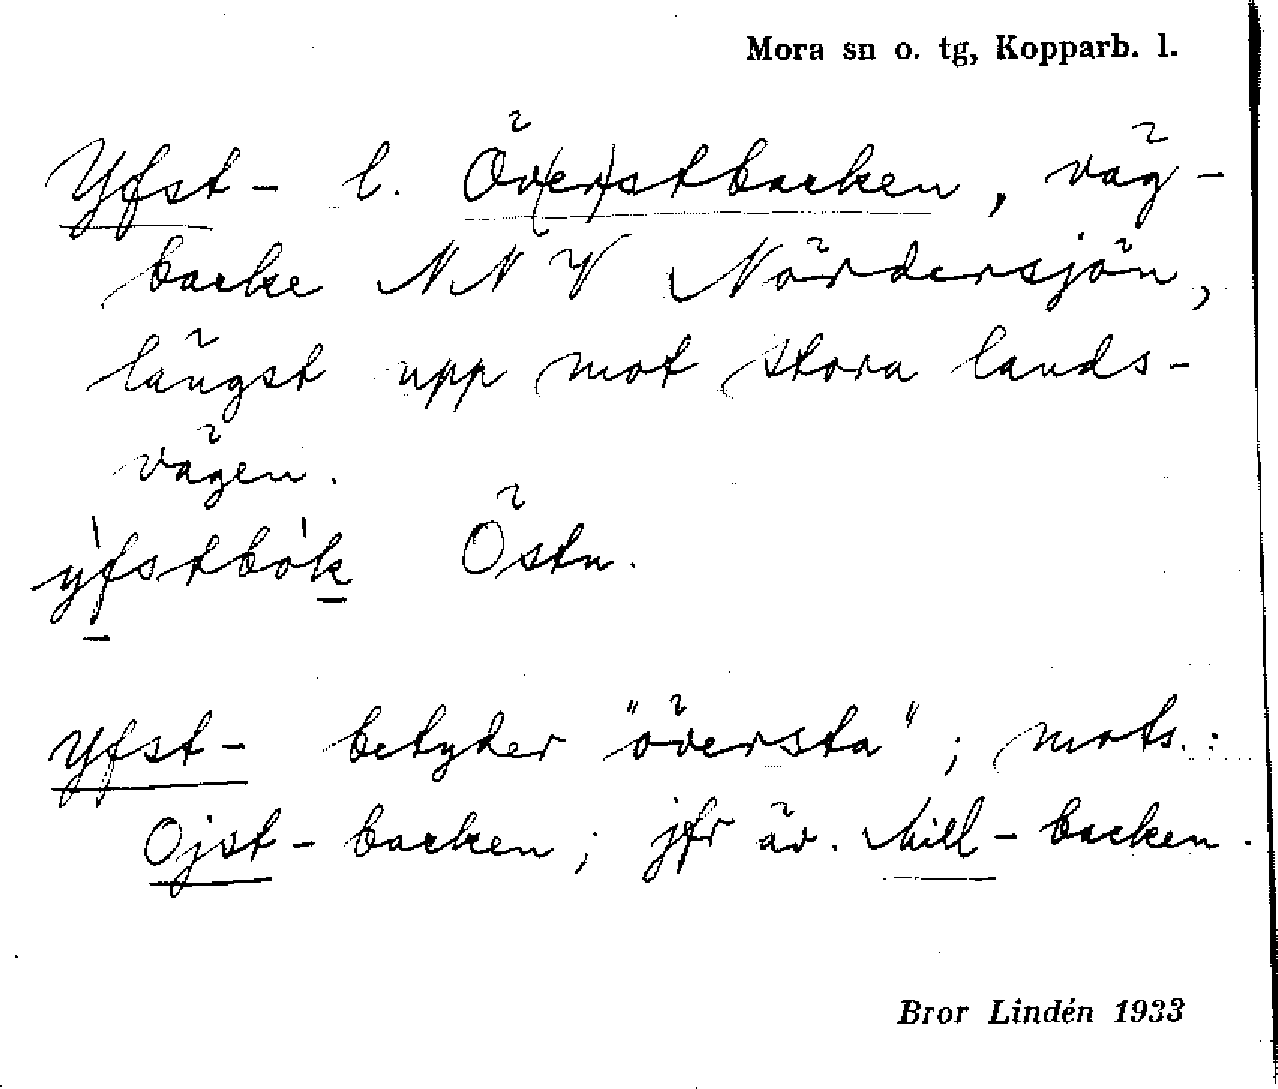 Mora sn o. tg, Kopparb. l.
Yfst- l. Öv(er)stbacken, väg-
backe NNV Nördersjön,
längst upp mot stora lands-
vägen.
ỳfstbòk Östn.
Yfst- betyder "översta"; mots.:
Ojst-backen; jfr äv. Mill-backen.
Bror Lindén 1933